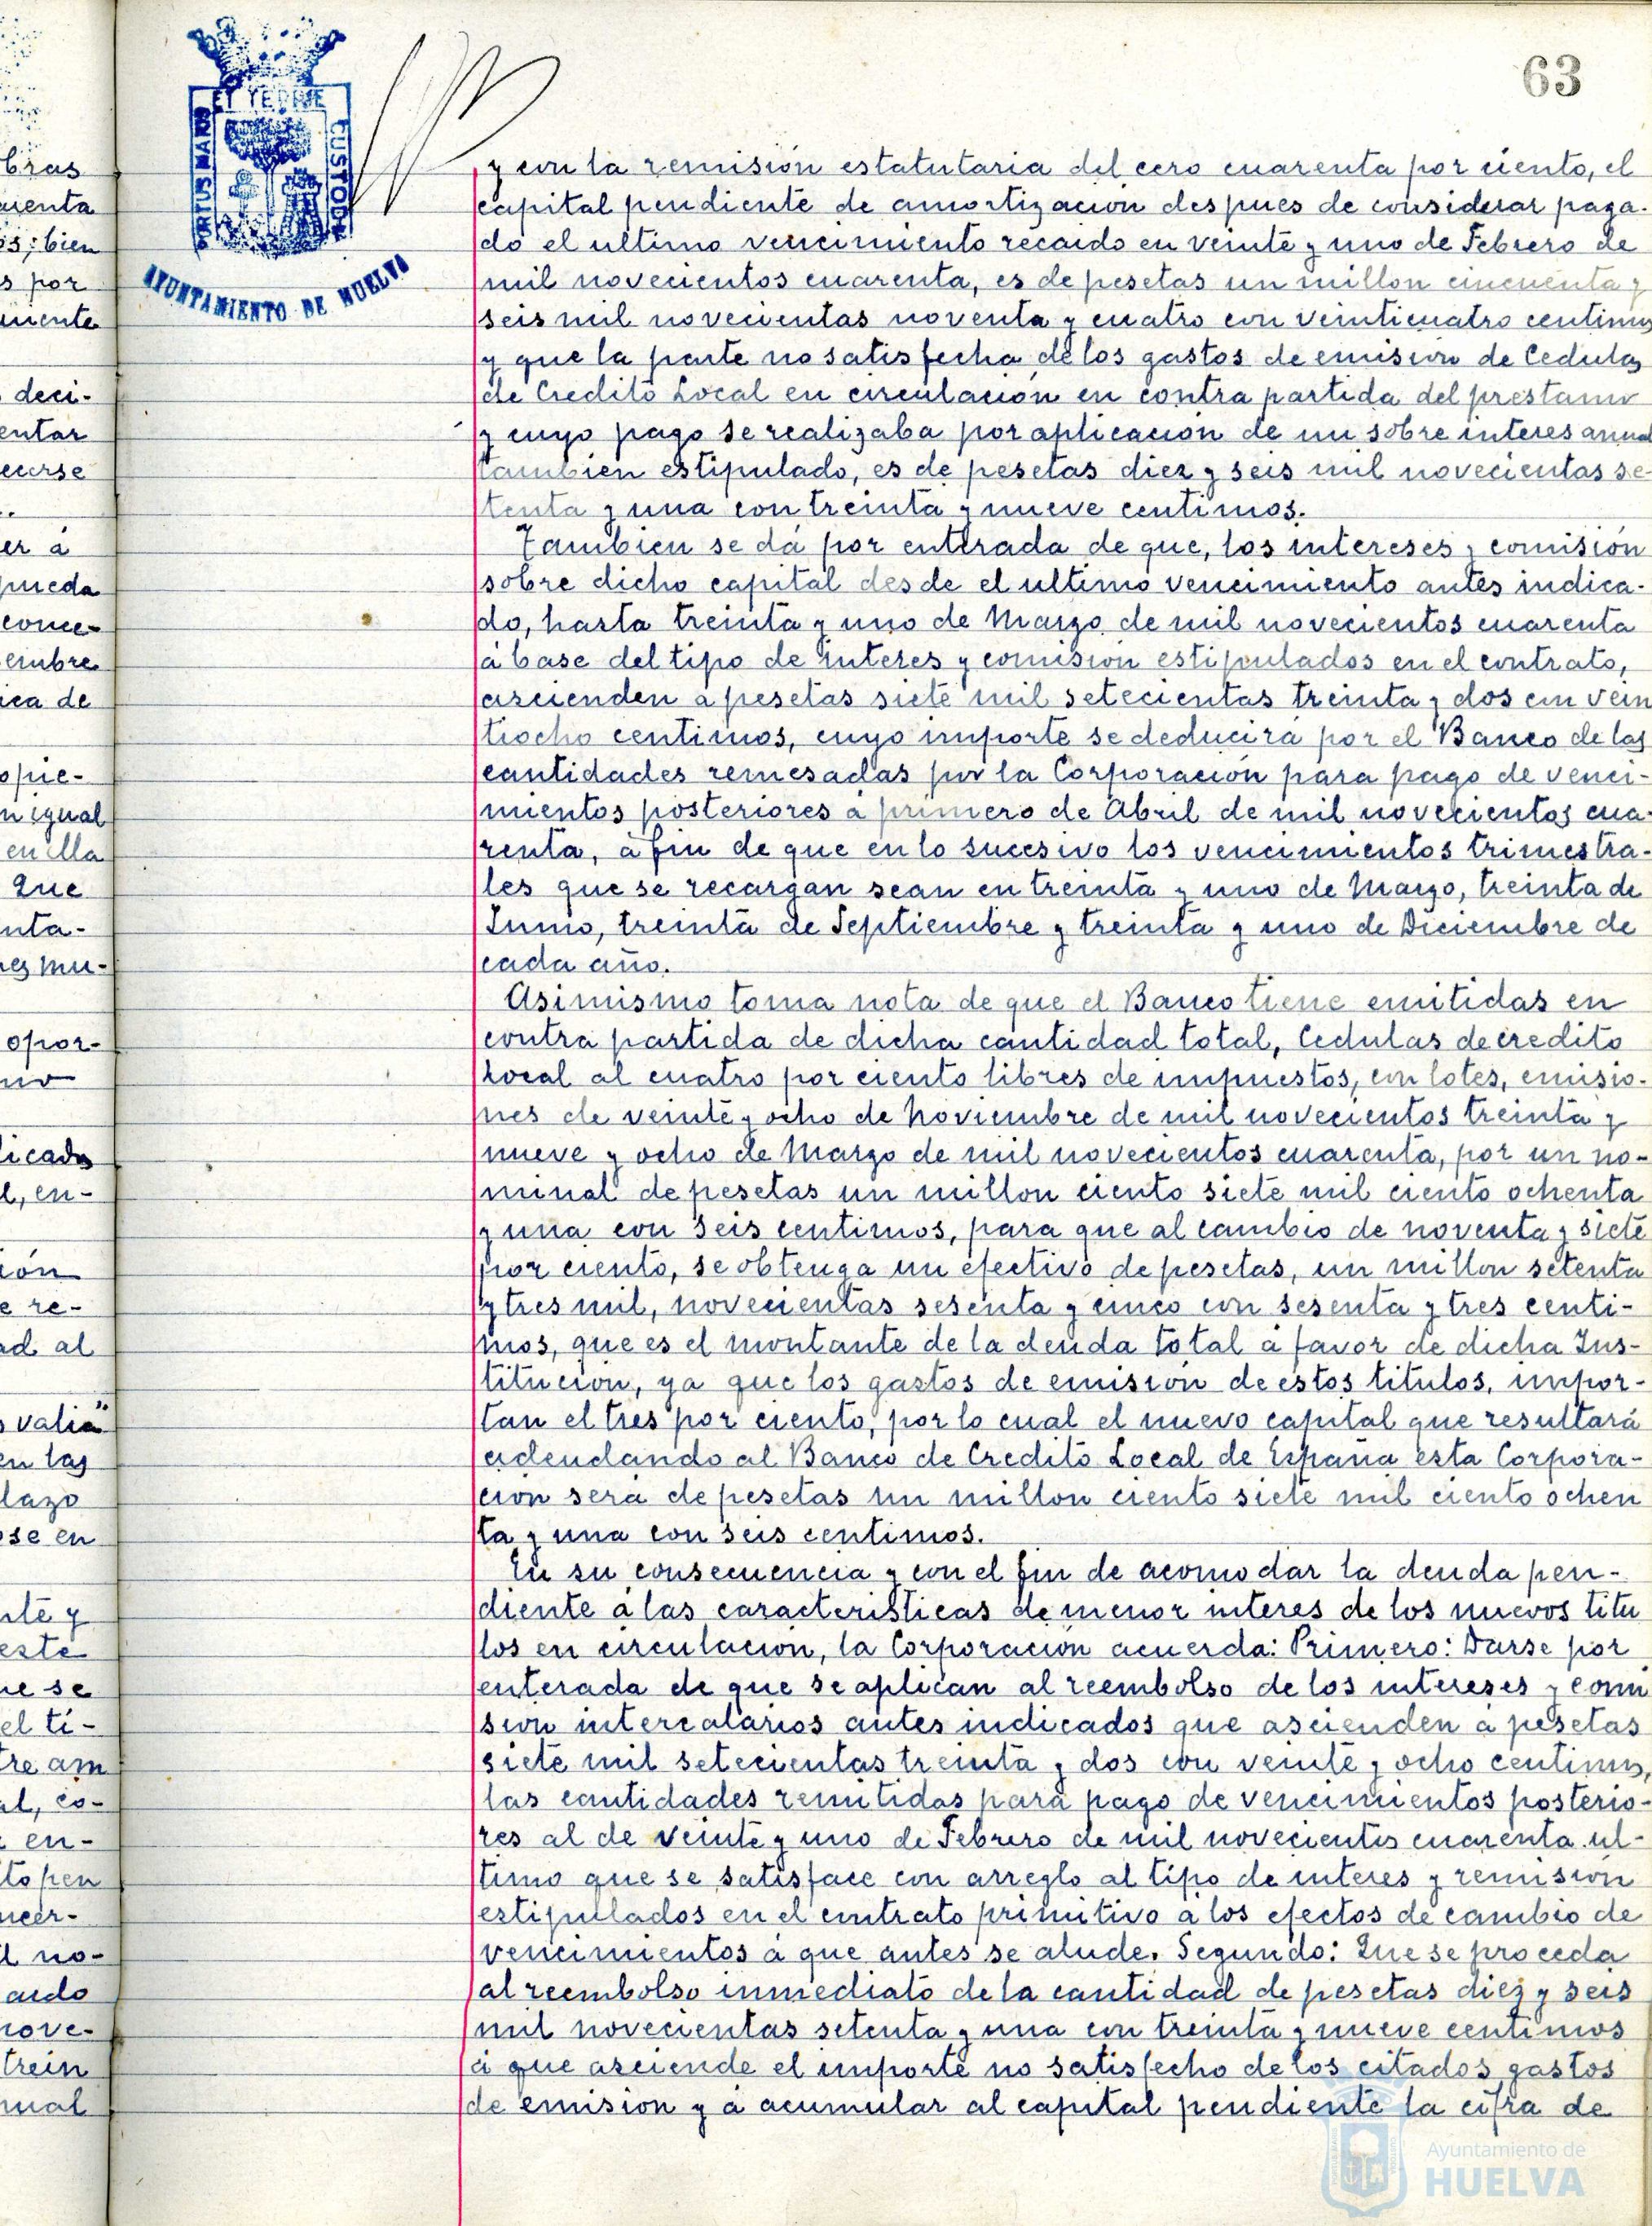 63
ET TERRAE
PORTUS MARIS
CUSTODIA
AYUNTAMIENTO DE HUELVA
bras
arenta
os; bien
s por
mente
deci-
entar
ecerse
er á
pueda
conce-
embre
ica de
opie-
n igual
en ella
Que
nta-
es mu-
opor-
no
licado
l, en-
ión
e re-
ad al
s valia"
en las
lazo
ose en
nte y
este
ue se
el ti-
tre am
al, co-
en-
to pen
ncer-
l no-
ardo
nove-
trein
nual
y con la remisión estatutaria del cero cuarenta por ciento, el
capital pendiente de amortización despues de considerar paga-
do el ultimo vencimiento recaido en veinte y uno de Febrero de
mil novecientos cuarenta, es de pesetas un millon cincuenta y
seis mil novecientas noventa y cuatro con veinticuatro centimos
y que la parte no satisfecha de los gastos de emisión de Cedulas
de Credito Local en circulación en contra partida del prestamo
y cuyo pago se realizaba por aplicación de un sobre interes anual
tambien estipulado, es de pesetas diez y seis mil novecientas se-
tenta y una con treinta y nueve centimos.
Tambien se dá por enterada de que, los intereses y comisión
sobre dicho capital desde el ultimo vencimiento antes indica-
do, hasta treinta y uno de Marzo de mil novecientos cuarenta
á base del tipo de interes y comisión estipulados en el contrato,
ascienden a pesetas siete mil setecientas treinta y dos con vein
tiocho centimos, cuyo importe se deducirá por el Banco de las
cantidades remesadas por la Corporación para pago de venci-
mientos posteriores á primero de Abril de mil novecientos cua-
renta, á fin de que en lo sucesivo los vencimientos trimestra-
les que se recargan sean en treinta y uno de Marzo, treinta de
Junio, treinta de Septiembre y treinta y uno de Diciembre de
cada año.
Asimismo toma nota de que el Banco tiene emitidas en
contra partida de dicha cantidad total, Cedulas de credito
Local al cuatro por ciento libres de impuestos, con lotes, emisio-
nes de veinte y ocho de Noviembre de mil novecientos treinta y
nueve y ocho de Marzo de mil novecientos cuarenta, por un no-
minal de pesetas un millon ciento siete mil ciento ochenta
y una con seis centimos, para que al cambio de noventa y siete
por ciento, se obtenga un efectivo de pesetas, un millon setenta
y tres mil, novecientas sesenta y cinco con sesenta y tres centi-
mos, que es el montante de la deuda total á favor de dicha Ins-
titución, ya que los gastos de emisión de estos titulos, impor-
tan el tres por ciento, por lo cual el nuevo capital que resultará
adeudando al Banco de Credito Local de España esta Corpora-
cion será de pesetas un millon ciento siete mil ciento ochen
ta y una con seis centimos.
En su consecuencia y con el fin de acomodar la deuda pen-
diente á las caracteristicas de menor interes de los nuevos titu
los en circulación, la Corporación acuerda: Primero: Darse por
enterada de que se aplican al reembolso de los intereses y comi
sion intercalarios antes indicados que ascienden á pesetas
siete mil setecientas treinta y dos con veinte y ocho centimos,
las cantidades remitidas para pago de vencimientos posterio-
res al de veinte y uno de Febrero de mil novecientos cuarenta ul-
timo que se satisface con arreglo al tipo de interes y remisión
estipulados en el contrato primitivo á los efectos de cambio de
vencimientos á que antes se alude. Segundo: Que se proceda
al reembolso inmediato de la cantidad de pesetas diez y seis
mil novecientas setenta y una con treinta y nueve centimos
á que asciende el importe no satisfecho de los citados gastos
de emisión y á acumular al capital pendiente la cifra de
Ayuntamiento de
HUELVA